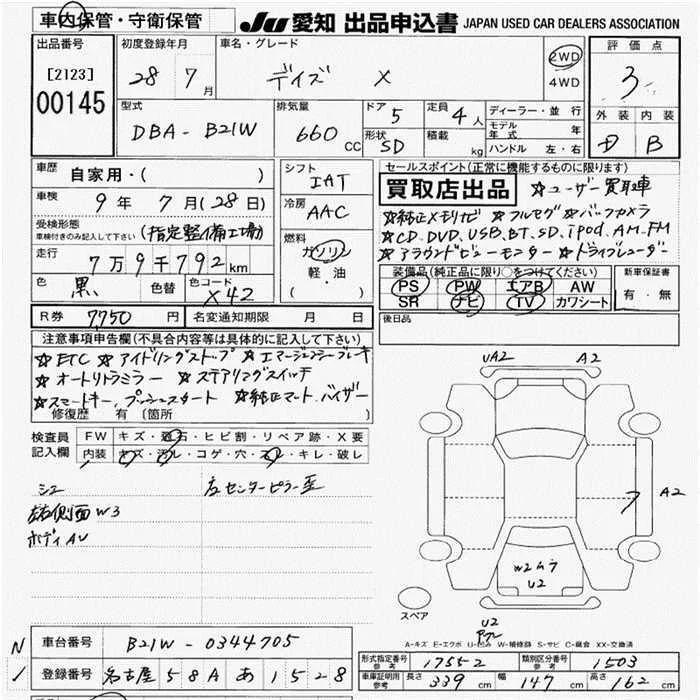 車内保管・守衛保管 JU 愛知 出品申込書 JAPAN USED CAR DEALERS ASSOCIATION
出品番号 [2123] 00145
初度登録年月 28年 7月
車名・グレード デイズ X
2WD 4WD
評価点 3
外装 内装 B
型式 DBA-B21W
排気量 660 CC
ドア 5 形状 5D
定員 4人 積載 kg
ディーラー・並行
モデル年式 年
ハンドル 左・右
車歴 自家用・( )
車検 9年 7月 (28日)
受検形態 車検付きのみ記入して下さい (指定整備工場)
走行 7万9千792km
色 黒 色替 色コード X42
シフト IAT
冷房 AAC
燃料 ガソリン 軽・油 ( )
セールスポイント(正常に機能するものに限ります)
買取店出品 ☆ユーザー買取車
☆純正メモリナビ ☆フルセグ ☆バックカメラ
☆CD.DVD.USB.BT.SD.ipod.AM.FM
☆アラウンドビューモニター ☆ドライブレコーダー
装備品(純正品に限り○をつけてください) 新車保証書
PS PW エアB AW 有・無
SR ナビ TV カワシート
R券 7750円 名変通知期限 月 日
後日品
注意事項申告欄(不具合内容等は具体的に記入して下さい)
☆ETC ☆アイドリングストップ ☆エマージェンシーブレーキ
☆オートリトラミラー ☆ステアリングスイッチ
☆スマートキー、プッシュスタート ☆純正マット、バイザー
修復歴 有 (箇所 )
検査員記入欄 FW キズ・飛石・ヒビ割・リペア跡・X要
内装 キズ・汚レ・コゲ・穴・スレ・キレ・破レ
左センターピラー歪
左右側面W3
ボディAU
UA2 A2
A2
W2ムラ
U2
スペア
U2
A-キズ E-エクボ U-凹み W-補修跡 S-サビ C-腐食 XX-交換済
車台番号 B21W-0344705
登録番号 名古屋 58A あ 1528
形式指定番号 参考 17552 類別区分番号 参考 1503
車庫証明用 参考 長さ 339 cm 幅 147 cm 高さ 162 cm